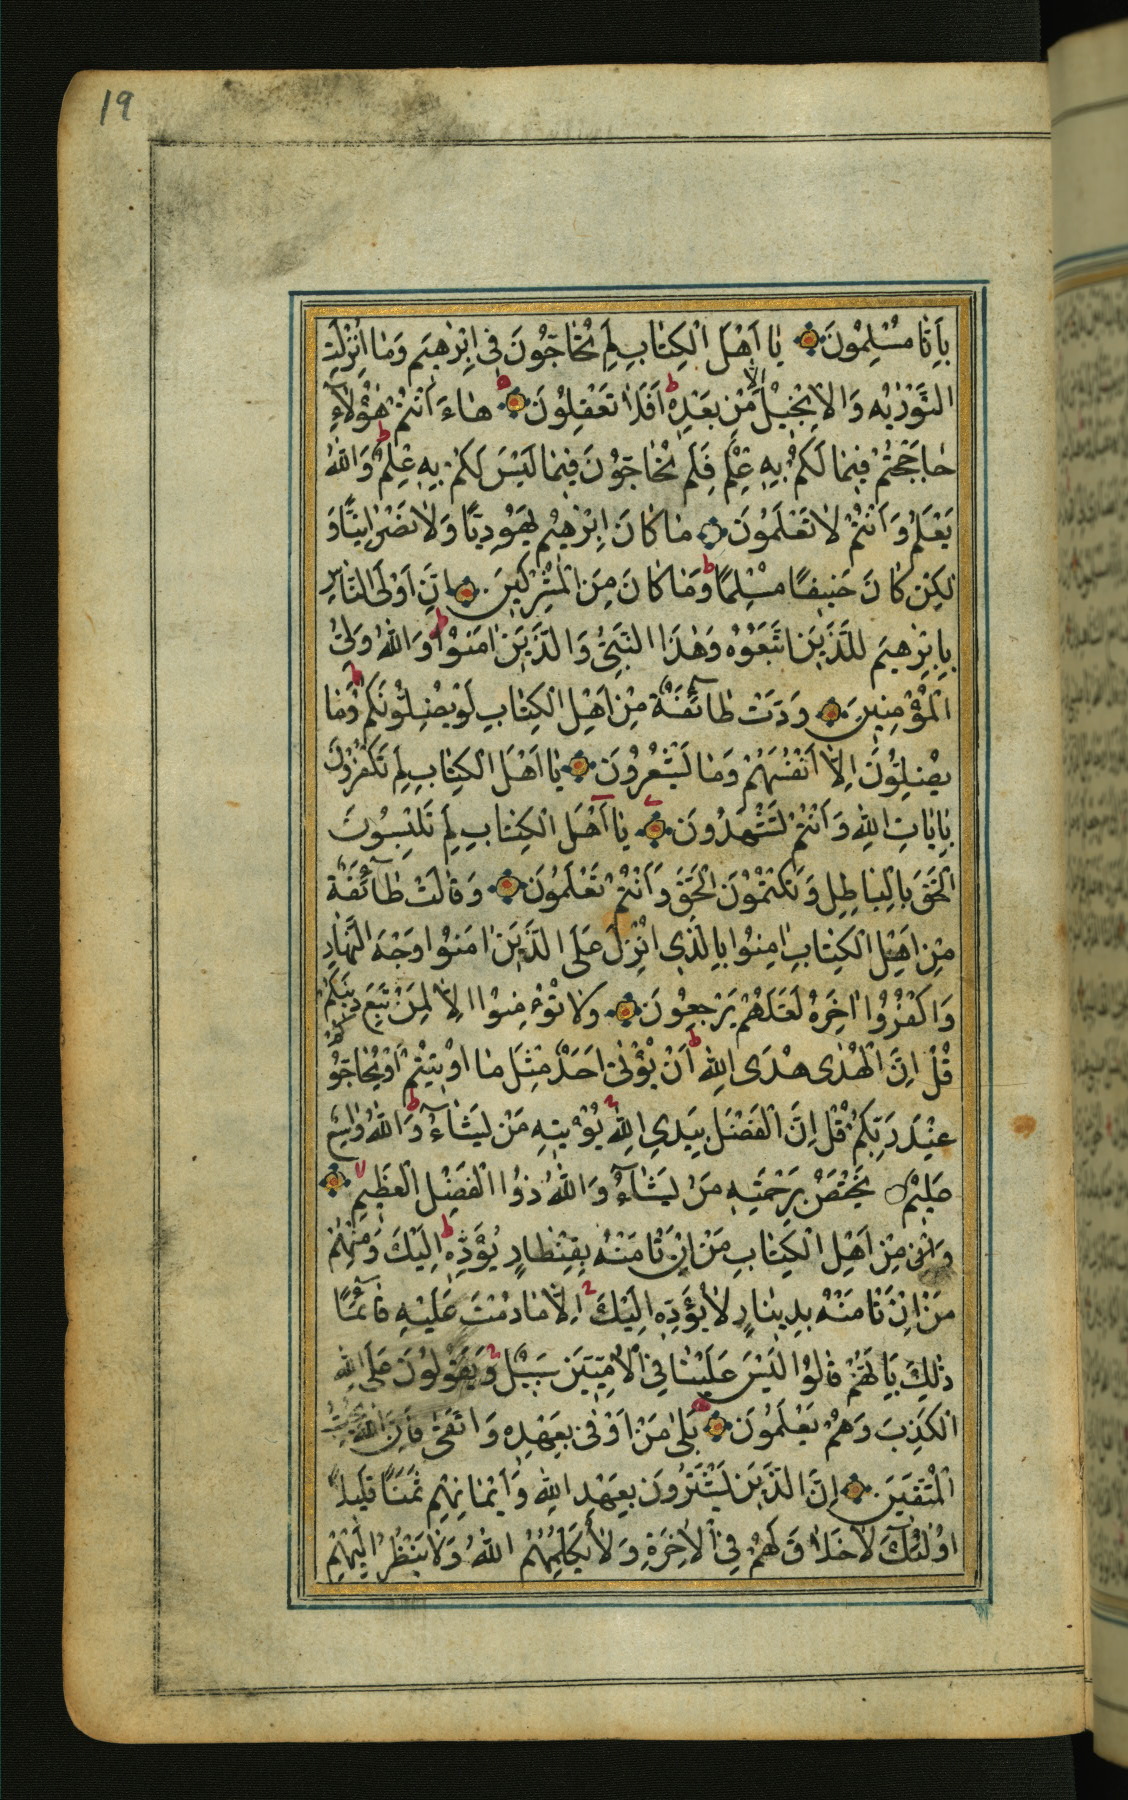 19
بِاَنَّا مُسْلِمُونَ يٰا اَهْلَ الْكِتٰابِ لِمَ تُحٰاجُّونَ فِى اِبْرٰهِيمَ وَمٰا اُنْزِلَتِ
التَّوْرٰيةُ وَالْاِنْجِيْلُ اِلَّا مِنْ بَعْدِهٖ ط اَفَلَا تَعْقِلُونَ هٰاءَ اَنْتُمْ هٰؤُلَآءِ
حٰاجَجْتُمْ فِيمٰا لَكُمْ بِهٖ عِلْمٌ فَلِمَ تُحٰاجُّونَ فِيمٰا لَيْسَ لَكُمْ بِهٖ عِلْمٌ ط وَاللّٰهُ
يَعْلَمُ وَاَنْتُمْ لٰا تَعْلَمُونَ مٰا كٰانَ اِبْرٰهِيمُ يَهُودِيًّا وَلٰا نَصْرٰانِيًّا وَ
لٰكِنْ كٰانَ حَنِيفًا مُسْلِمًا ط وَمٰا كٰانَ مِنَ الْمُشْرِكِينَ اِنَّ اَوْلَى النّٰاسِ
بِاِبْرٰهِيمَ لَلَّذِينَ اتَّبَعُوهُ وَهٰذَا النَّبِىُّ وَالَّذِينَ اٰمَنُوْا ط وَاللّٰهُ وَلِىُّ
الْمُؤْمِنِينَ وَدَّتْ طٰآئِفَةٌ مِنْ اَهْلِ الْكِتٰابِ لَوْ يُضِلُّونَكُمْ ط وَمٰا
يُضِلُّونَ اِلَّا اَنْفُسَهُمْ وَمٰا يَشْعُرُونَ يٰا اَهْلَ الْكِتٰابِ لِمَ تَكْفُرُونَ
بِاٰيٰاتِ اللّٰهِ وَاَنْتُمْ تَشْهَدُونَ يٰا اَهْلَ الْكِتٰابِ لِمَ تَلْبِسُونَ
الْحَقَّ بِالْبٰاطِلِ وَتَكْتُمُونَ الْحَقَّ وَاَنْتُمْ تَعْلَمُونَ وَقٰالَتْ طٰآئِفَةٌ
مِنْ اَهْلِ الْكِتٰابِ اٰمِنُوا بِالَّذِى اُنْزِلَ عَلَى الَّذِينَ اٰمَنُوا وَجْهَ النَّهٰارِ
وَاكْفُرُوا اٰخِرَهُ لَعَلَّهُمْ يَرْجِعُونَ وَلٰا تُؤْمِنُوْا اِلَّا لِمَنْ تَبِعَ دِينَكُمْ
قُلْ اِنَّ الْهُدٰى هُدَى اللّٰهِ ط اَنْ يُؤْتٰى اَحَدٌ مِثْلَ مٰا اُوْتِيْتُمْ اَوْ يُحٰاجُّوكُمْ
عِنْدَ رَبِّكُمْ قُلْ اِنَّ الْفَضْلَ بِيَدِى اللّٰهِ يُؤْتِيهِ مَنْ يَشٰآءُ ط وَاللّٰهُ وٰاسِعٌ
عَلِيْمٌ يَخْتَصُّ بِرَحْمَتِهٖ مَنْ يَشٰآءُ وَاللّٰهُ ذُوا الْفَضْلِ الْعَظِيمِ
وَمِنْ اَهْلِ الْكِتٰابِ مَنْ اِنْ تَأْمَنْهُ بِقِنْطٰارٍ يُؤَدِّهٖ ط اِلَيْكَ وَمِنْهُمْ
مَنْ اِنْ تَأْمَنْهُ بِدِينٰارٍ لٰا يُؤَدِّهٖ اِلَيْكَ اِلَّا مٰا دُمْتَ عَلَيْهِ قٰآئِمًا
ذٰلِكَ بِاَنَّهُمْ قٰالُوْا لَيْسَ عَلَيْنٰا فِى الْاُمِّيِّينَ سَبِيلٌ وَيَقُولُونَ عَلَى اللّٰهِ
الْكَذِبَ وَهُمْ يَعْلَمُونَ بَلٰى مَنْ اَوْفٰى بِعَهْدِهٖ وَاتَّقٰى فَاِنَّ اللّٰهَ يُحِبُّ
الْمُتَّقِينَ اِنَّ الَّذِينَ يَشْتَرُونَ بِعَهْدِ اللّٰهِ وَاَيْمٰانِهِمْ ثَمَنًا قَلِيلًا
اُولٰئِكَ لٰا خَلٰاقَ لَهُمْ فِى الْاٰخِرَةِ وَلٰا يُكَلِّمُهُمُ اللّٰهُ وَلٰا يَنْظُرُ اِلَيْهِمْ